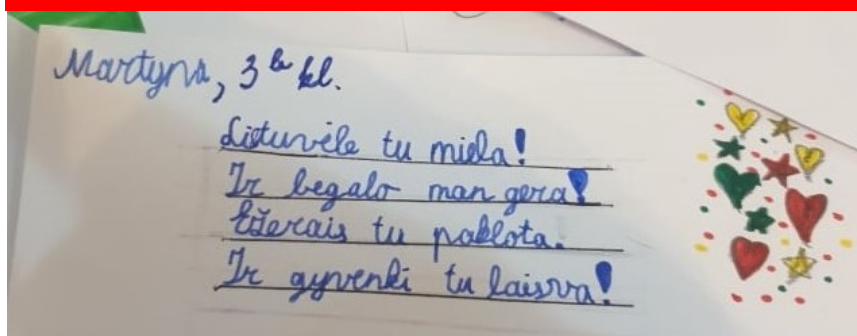 Martyna, 3b kl.
Lietuvėle tu miela!
Ir begalo man gera!
Ežerais tu paklota.
Ir gyvenki tu laisva!